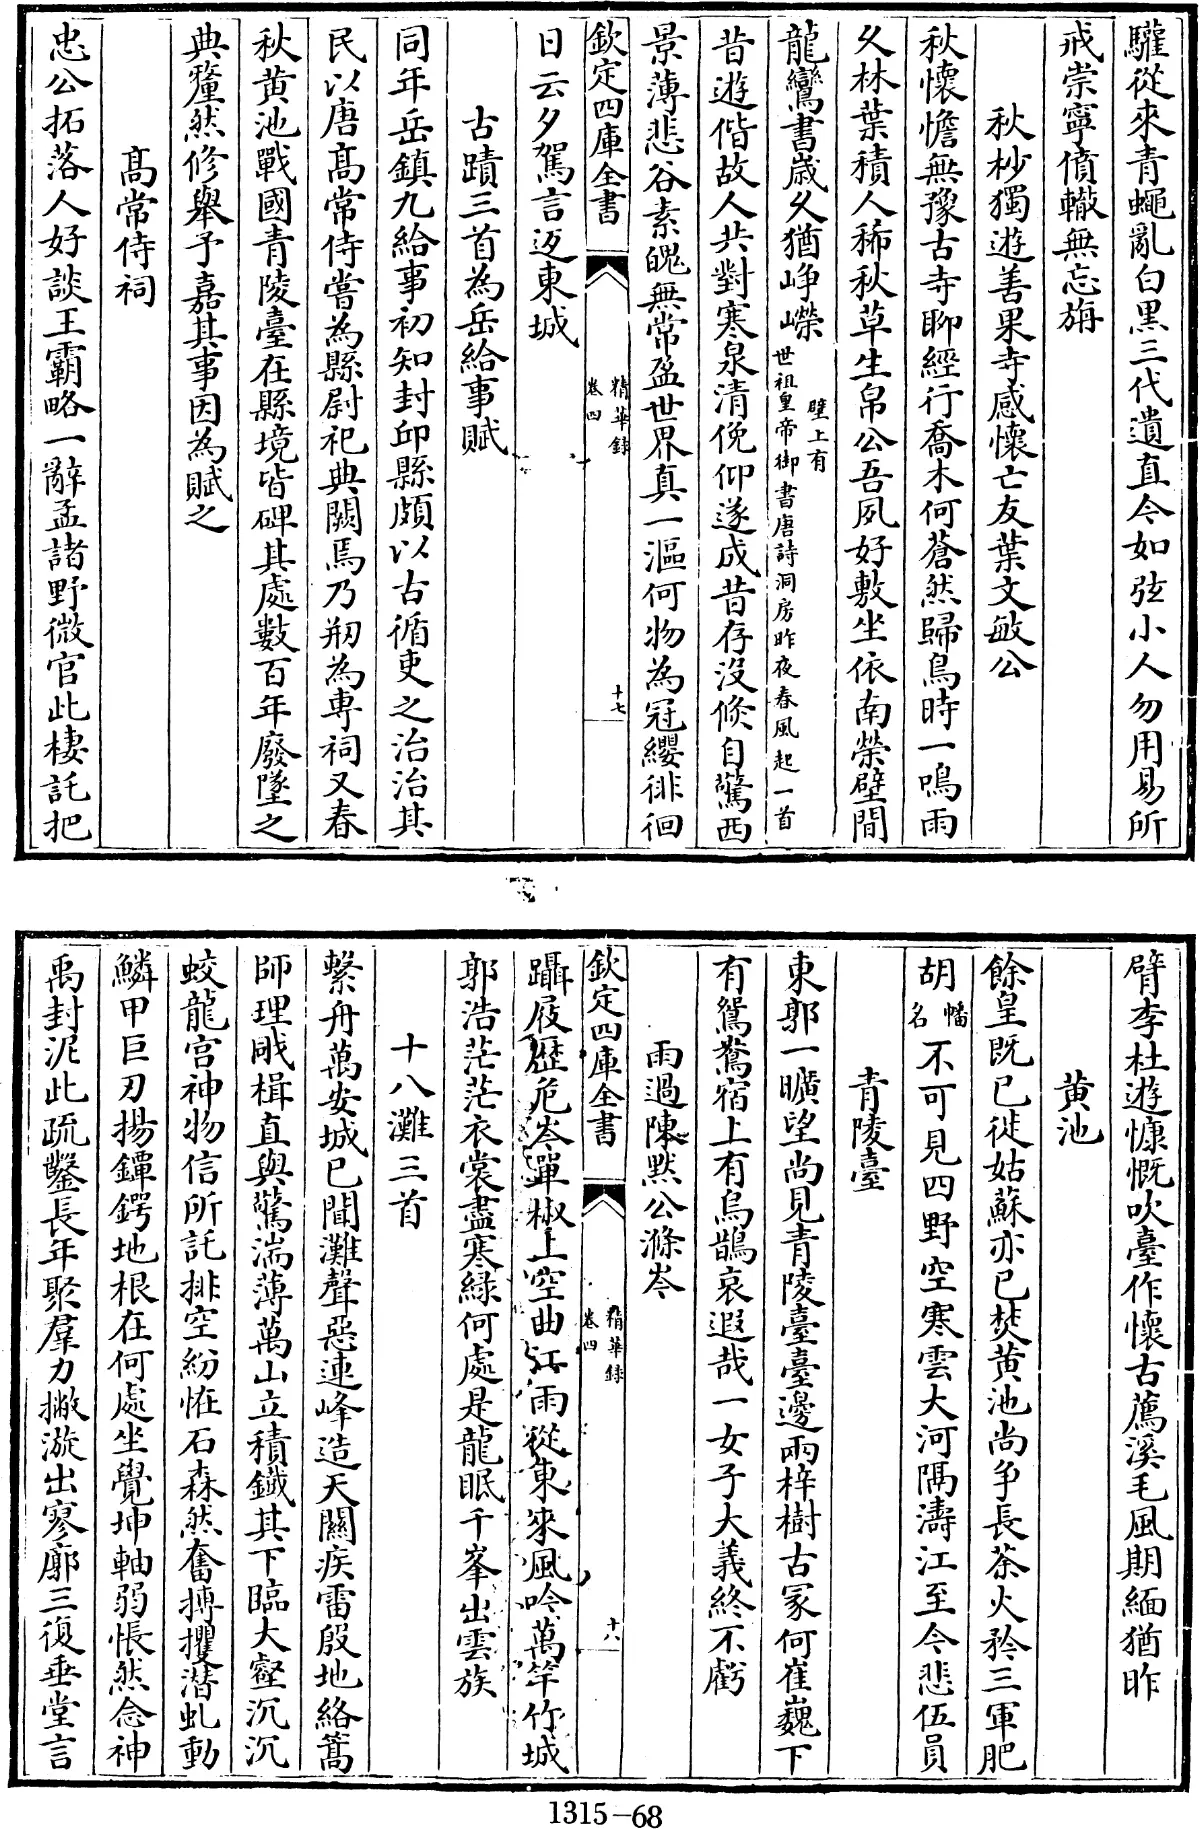 驩從來青蠅亂白黑三代遺直今如弦小人勿用易所
戒崇寧僨轍無忘旃
秋杪獨遊善果寺感懷亡友葉文敏公
秋懷憺無豫古寺聊經行喬木何蒼然歸鳥時一鳴雨
久林葉積人稀秋草生帛公吾夙好敷坐依南榮壁間
龍鸞書歲久猶峥嶸壁上有世祖皇帝御書唐詩洞房昨夜春風起一首
昔遊偕故人共對寒泉清俛仰遂成昔存沒倐自驚西
景薄悲谷素魄無常盈世界真一漚何物為冠纓徘徊
欽定四庫全書
精華錄
卷四
十七
日云夕駕言返東城
古蹟三首為岳給事賦
同年岳鎮九給事初知封邱縣頗以古循吏之治治其
民以唐髙常侍嘗為縣尉祀典闕焉乃剏為専祠又春
秋黄池戰國青陵臺在縣境皆碑其處數百年廢墜之
典釐然修舉予嘉其事因為賦之
髙常侍祠
忠公拓落人好談王霸略一辭孟諸野微官此棲託把
臂李杜遊慷慨吹臺作懐古薦溪毛風期緬猶昨
黄池
餘皇既已徙姑蘇亦已焚黄池尚争長荼火矜三軍肥
胡幡名不可見四野空寒雲大河隔濤江至今悲伍員
青陵臺
東郭一曠望尚見青陵臺臺邊兩梓樹古冢何崔巍下
有鴛鴦宿上有烏鵲哀遐哉一女子大義終不虧
雨過陳默公滌岑
欽定四庫全書
精華錄
卷四
十八
躡屐歴危岑單椒上空曲江雨從東來風吟萬竿竹城
郭浩茫茫衣裳盡寒綠何處是龍眠千峯出雲族
十八灘三首
繫舟萬安城已聞灘聲惡連峰造天闗疾雷殷地絡篙
師理戙楫直與驚湍薄萬山立積鐵其下臨大壑沉沉
蛟龍宫神物信所託排空紛恠石森然奮搏攫潜虬動
鱗甲巨刃揚鐔鍔地根在何處坐覺坤軸弱悵然念神
禹封泥此疏鑿長年聚羣力撇漩出寥廓三復垂堂言
1315-68